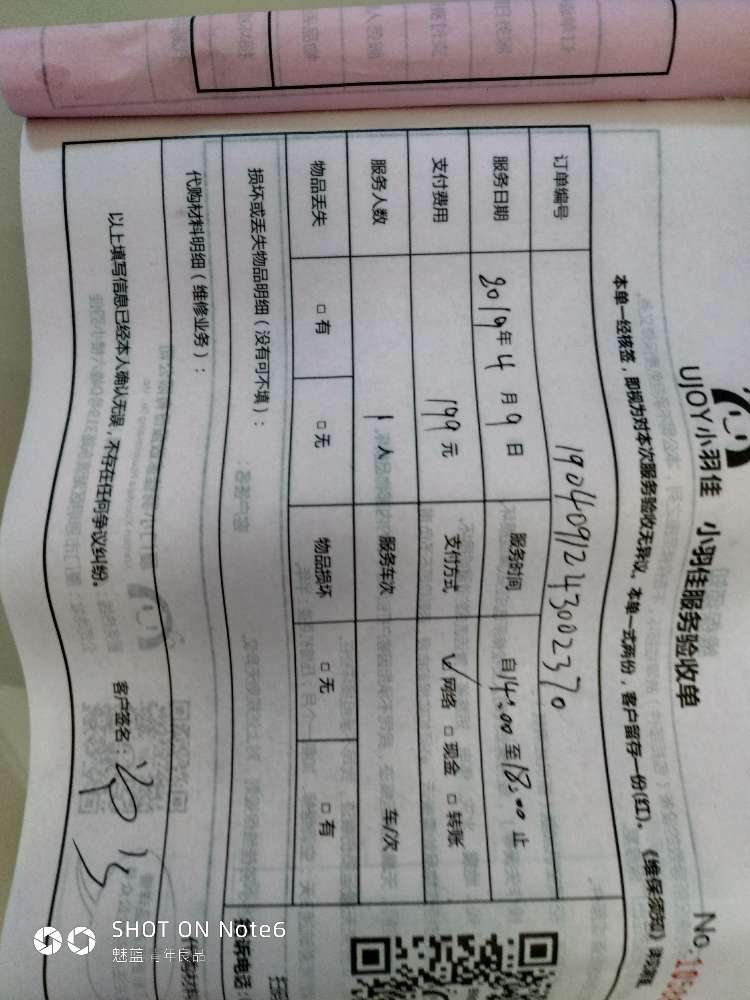 UJOY小羽佳 小羽佳服务验收单
No.
本单一经核签，即视为对本次服务验收无异议。本单一式两份，客户留存一份(红)。《维保须知》
订单编号 1904091243002370
服务日期 2019年4月9日 服务时间 自14:00至18:00止
支付费用 199元 支付方式 ☑网络 □现金 □转账
服务人数 1人 服务车次 车/次
物品丢失 □有 □无 物品损坏 □无 □有
损坏或丢失物品明细（没有可不填）：
代购材料明细（维修业务）：
以上填写信息已经本人确认无误，不存在任何争议纠纷。 客户签名：
诉电话：
SHOT ON Note6
魅蓝 青年良品